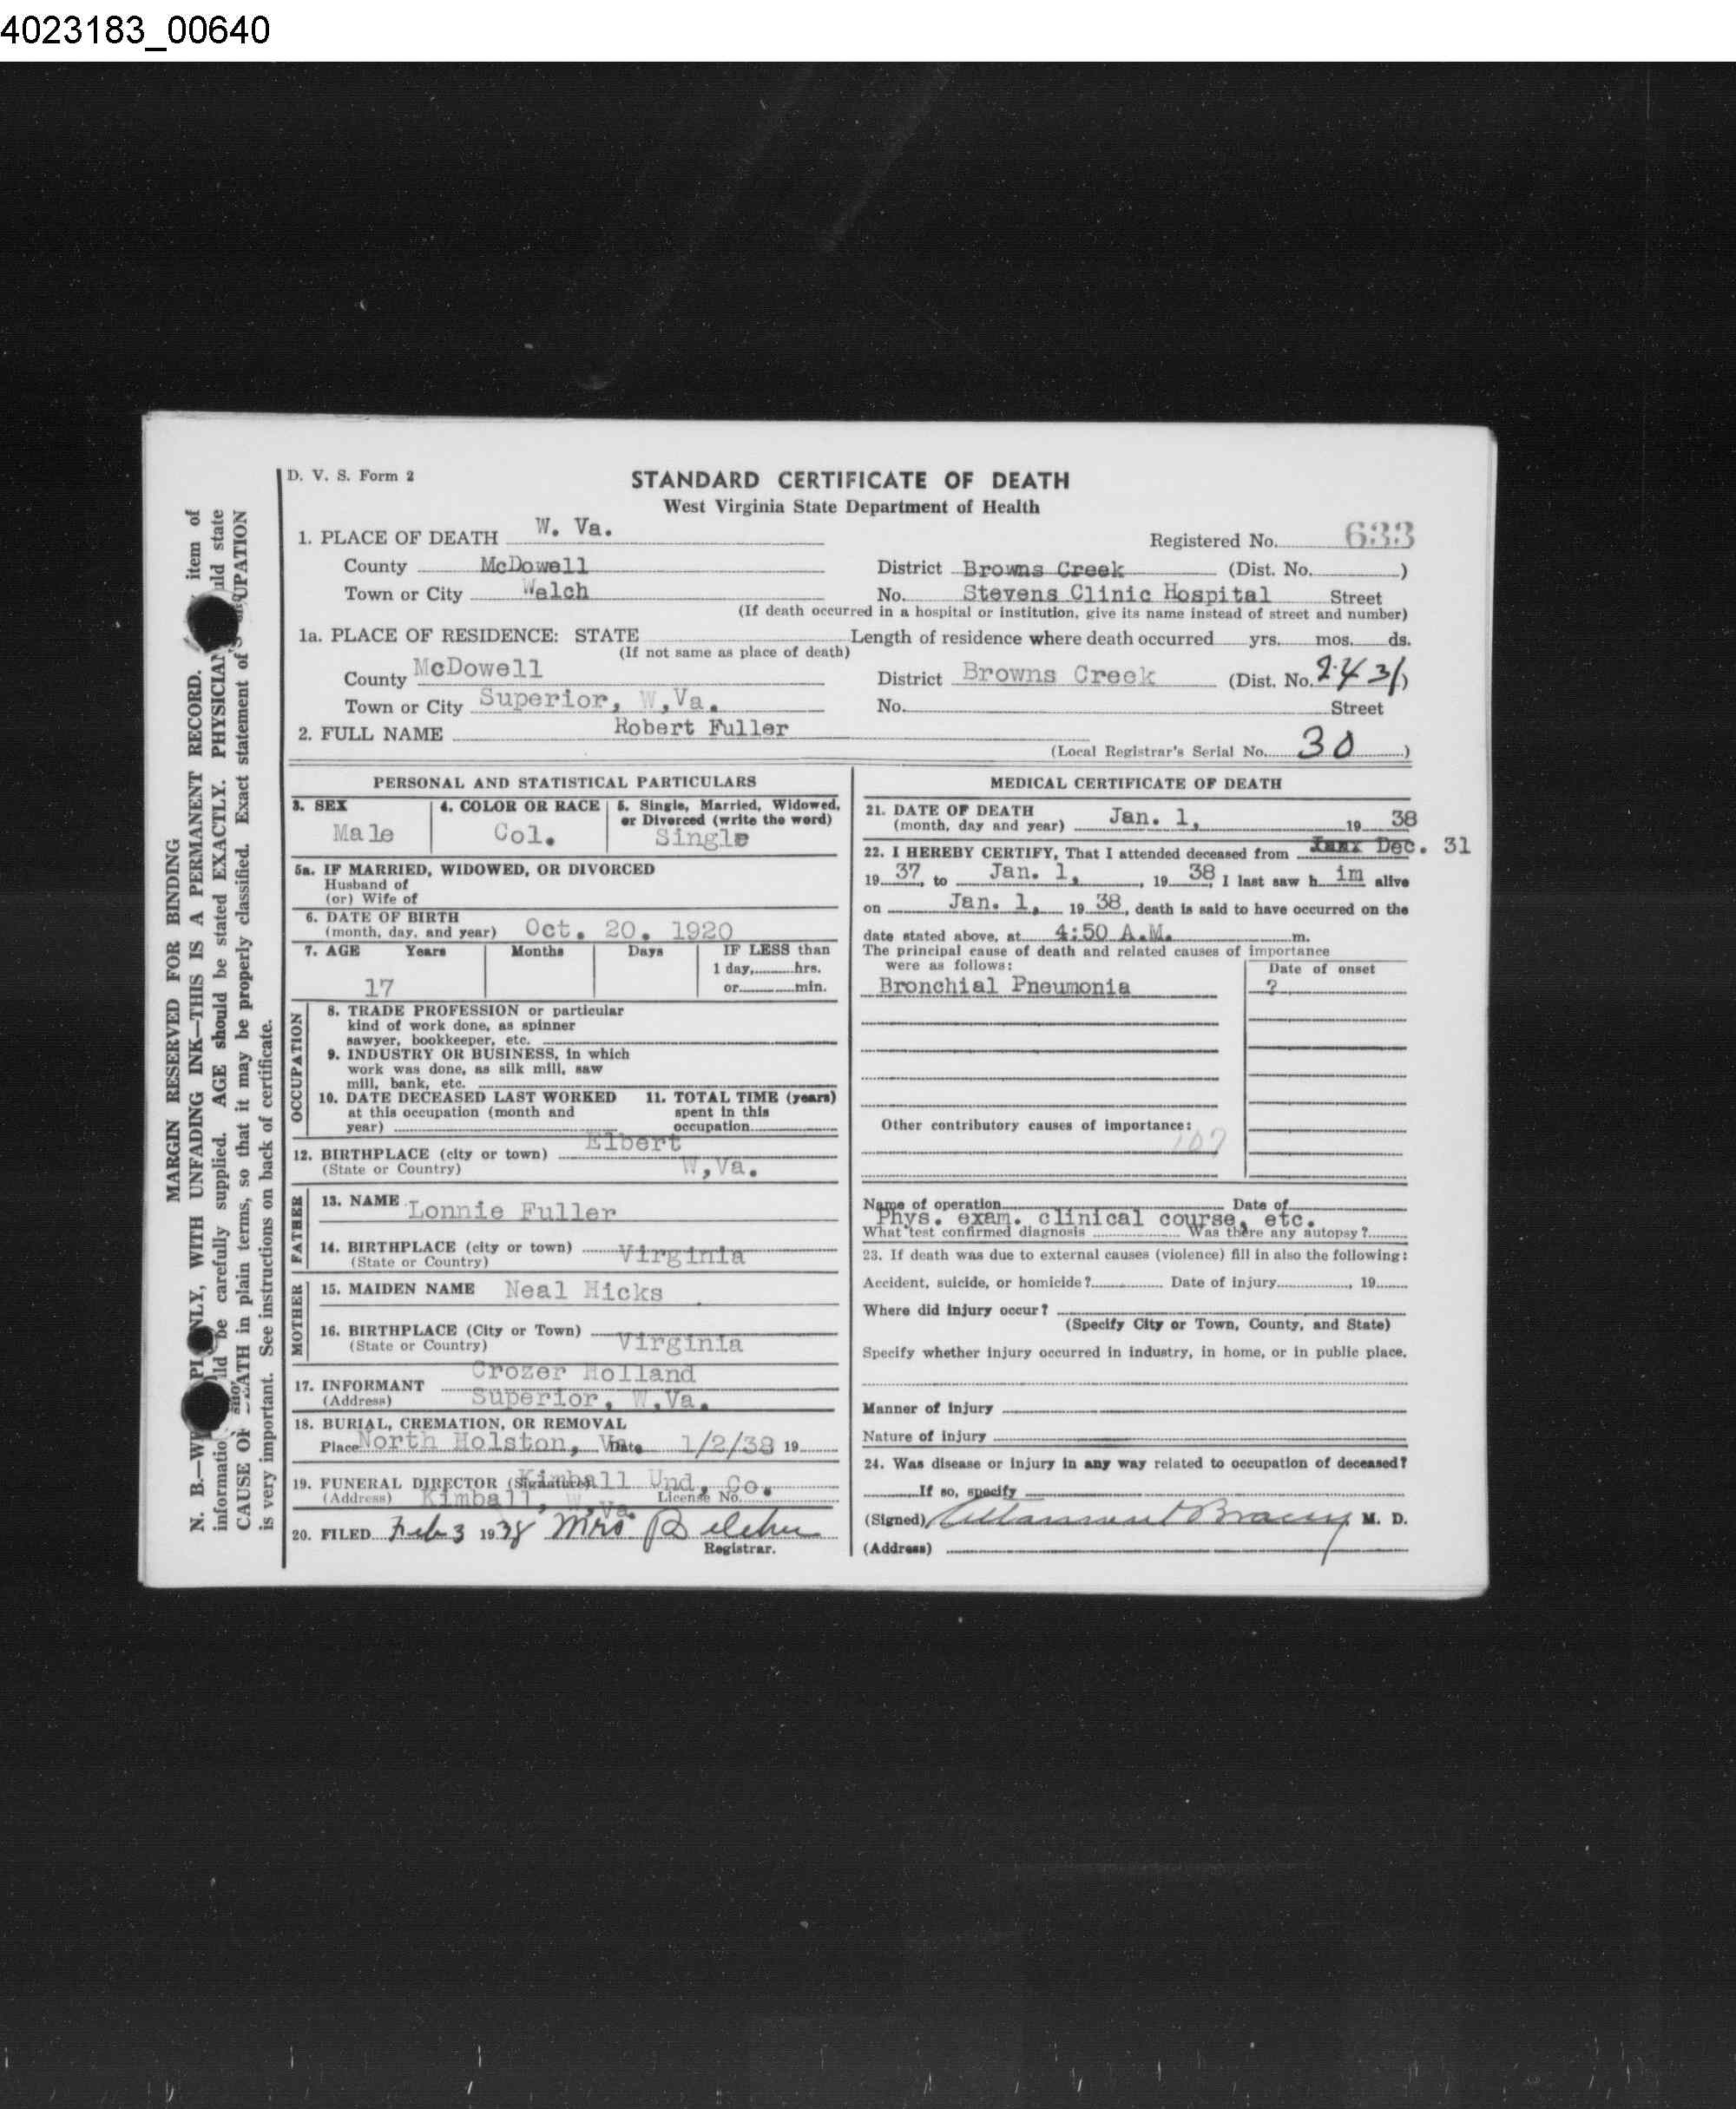 4023183_00640
D. V. S. Form 2
STANDARD CERTIFICATE OF DEATH
West Virginia State Department of Health
1. PLACE OF DEATH W. Va.
Registered No. 633
County McDowell District Browns Creek (Dist. No. )
Town or City Welch No. Stevens Clinic Hospital Street
(If death occurred in a hospital or institution, give its name instead of street and number)
1a. PLACE OF RESIDENCE: STATE Length of residence where death occurred yrs. mos. ds.
(If not same as place of death)
County McDowell District Browns Creek (Dist. No. 2431)
Town or City Superior, W,Va. No. Street
2. FULL NAME Robert Fuller
(Local Registrar's Serial No. 30 )
PERSONAL AND STATISTICAL PARTICULARS
3. SEX 4. COLOR OR RACE 5. Single, Married, Widowed, or Divorced (write the word)
Male Col. Single
5a. IF MARRIED, WIDOWED, OR DIVORCED
Husband of
(or) Wife of
6. DATE OF BIRTH
(month, day, and year) Oct. 20. 1920
7. AGE Years Months Days IF LESS than
1 day, hrs.
17 or min.
OCCUPATION
8. TRADE PROFESSION or particular
kind of work done, as spinner
sawyer, bookkeeper, etc.
9. INDUSTRY OR BUSINESS, in which
work was done, as silk mill, saw
mill, bank, etc.
10. DATE DECEASED LAST WORKED 11. TOTAL TIME (years)
at this occupation (month and spent in this
year) occupation
12. BIRTHPLACE (city or town) Elbert
(State or Country) W,Va.
FATHER
13. NAME Lonnie Fuller
14. BIRTHPLACE (city or town) Virginia
(State or Country)
MOTHER
15. MAIDEN NAME Neal Hicks
16. BIRTHPLACE (City or Town) Virginia
(State or Country)
17. INFORMANT Crozer Holland
(Address) Superior, W.Va.
18. BURIAL, CREMATION, OR REMOVAL
Place North Holston, Va Date 1/2/38 19
19. FUNERAL DIRECTOR (Signature) Kimball Und. Co.
(Address) Kimball, W,Va. License No.
20. FILED Feb 3 1938 Mrs. Belcher
Registrar.
MEDICAL CERTIFICATE OF DEATH
21. DATE OF DEATH
(month, day and year) Jan. 1, 19 38
22. I HEREBY CERTIFY, That I attended deceased from Dec. 31
19 37, to Jan. 1, , 19 38, I last saw h im alive
on Jan. 1, 19 38, death is said to have occurred on the
date stated above, at 4:50 A.M. m.
The principal cause of death and related causes of importance
were as follows: Date of onset
Bronchial Pneumonia ?
Other contributory causes of importance:
107
Name of operation Date of
Phys. exam. clinical course, etc.
What test confirmed diagnosis Was there any autopsy?
23. If death was due to external causes (violence) fill in also the following:
Accident, suicide, or homicide? Date of injury , 19
Where did injury occur?
(Specify City or Town, County, and State)
Specify whether injury occurred in industry, in home, or in public place.
Manner of injury
Nature of injury
24. Was disease or injury in any way related to occupation of deceased?
If so, specify
(Signed) M. D.
(Address)
MARGIN RESERVED FOR BINDING
N. B.—WRITE PLAINLY, WITH UNFADING INK—THIS IS A PERMANENT RECORD. item of
information should be carefully supplied. AGE should be stated EXACTLY. PHYSICIAN should state
CAUSE OF DEATH in plain terms, so that it may be properly classified. Exact statement of OCCUPATION
is very important. See instructions on back of certificate.